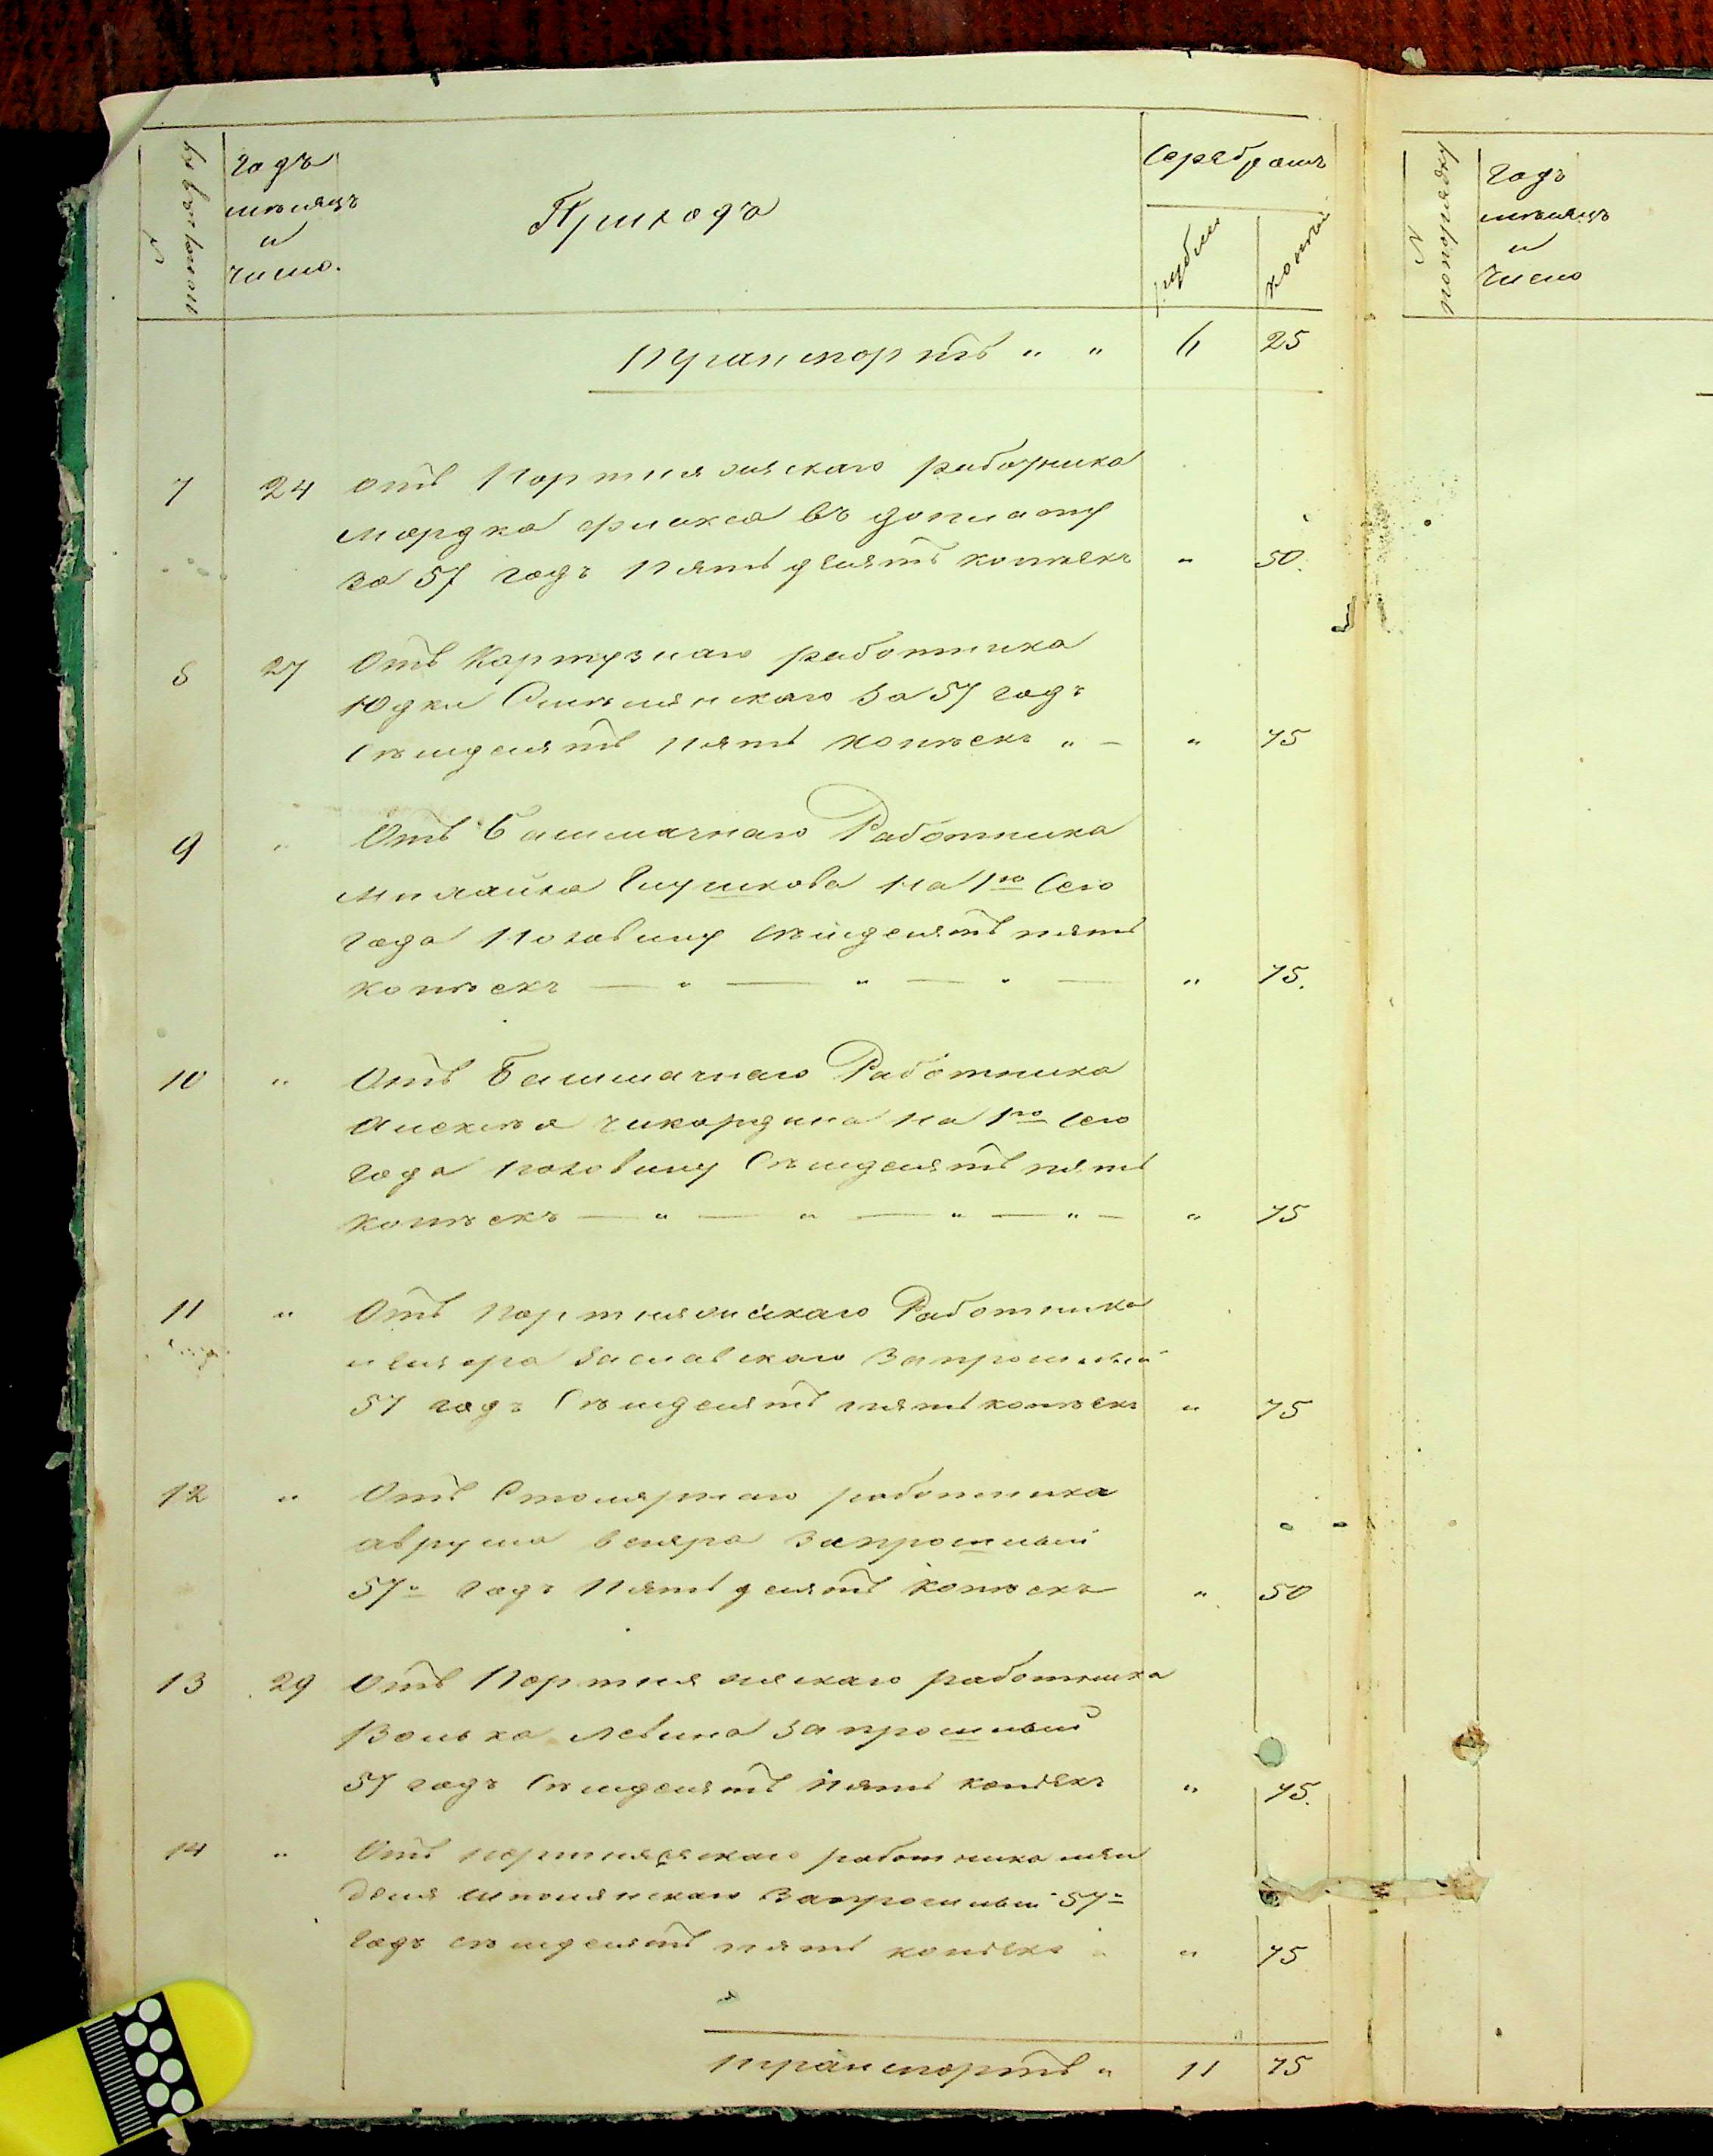 № по порядку
Годъ
мѣсяцъ
и
число.
Приходъ
Серебромъ
рубли
копѣй
Транспортъ " " 6 25
7 24 Отъ Портняжскаго работника
Мордка Флакса въ доплату
за 57 годъ Пятьдесятъ копѣекъ " 50.
8 27 Отъ Картузнаго работника
Юдки Смѣлянскаго за 57 годъ
Семдесятъ пять копѣекъ " — " 75
9 " Отъ Башмачнаго Работника
Глушкова на 1ю сего
года половину Семдесятъ пять
копѣекъ — " — " — " — " 75.
10 " Отъ Башмачнаго Работника
Алексѣя на 1ю сего
года половину Семдесятъ пять
копѣекъ — " — " — " — " — " 75
11 " Отъ Портняжскаго Работника
Заславскаго за прошлый
57 годъ Семдесятъ пять копѣекъ " 75
12 " Отъ Столярнаго работника
Аврума за прошлый
57й годъ Пятьдесятъ копѣекъ " 50
13 29 Отъ Портняжскаго работника
Волька Левина за прошлый
57 годъ Семдесятъ пять копѣекъ " 75.
14 " Отъ портняжскаго работника Мен
деля Шполянскаго за прошлый 57й
годъ семдесятъ пять копѣекъ " " 75
транспортъ " 11 75
№ по порядку
Годъ
мѣсяцъ
и
Число